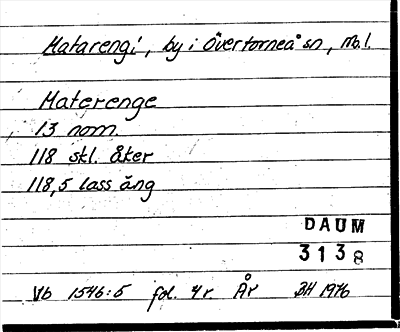 Matarengi, by i Övertorneå sn, Nb.l.
Materenge
13 nom.
118 skl. åker
118,5 lass äng
DAUM
3138
Vb 1546:5 fol. 4r. År BH 1976